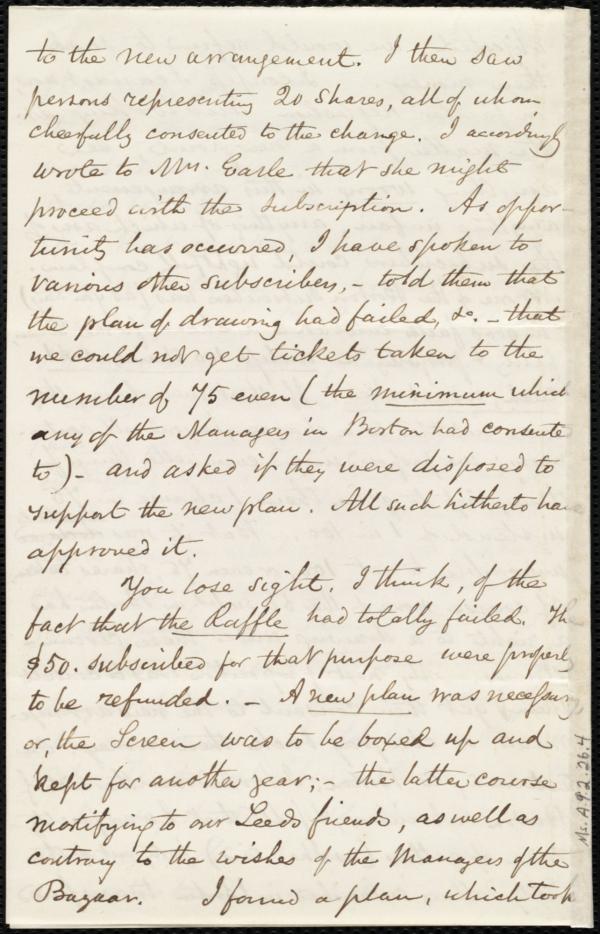 to the new arrangement. I then saw
persons representing 20 shares, all of whom
cheerfully consented to the change. I accordingly
wrote to Mrs. Earle that she might
proceed with the subscription. As oppor-
tunity has occurred, I have spoken to
various other subscribers, – told them that
the plan of drawing had failed, &c. – that
we could not get tickets taken to the
number of 75 even (the minimum which
any of the Managers in Boston had consente
to) – and asked if they were disposed to
support the new plan. All such hitherto have
approved it.
You lose sight, I think, of the
fact that the Raffle had totally failed. The
$50. subscribed for that purpose were properly
to be refunded. – A new plan was necessary
or, the Screen was to be boxed up and
kept for another year; – the latter course
mortifying to our Leeds friends, as well as
contrary to the wishes of the Managers of the
Bazaar. I formed a plan, which took
Ms. A.9.2.26.4